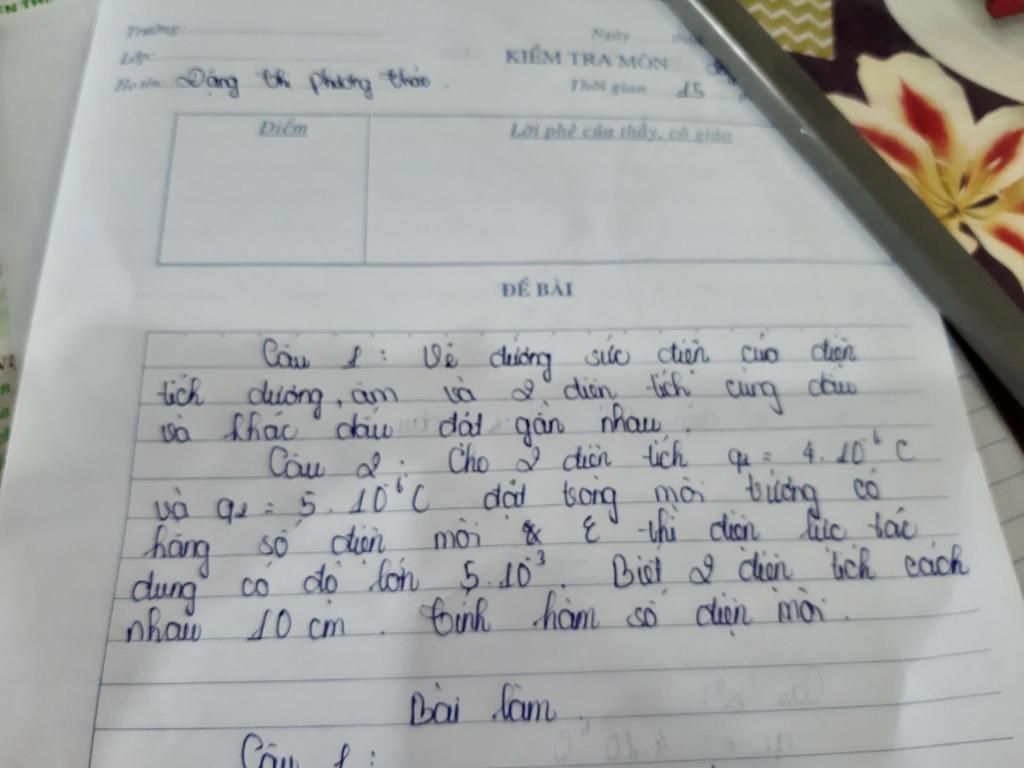 Trường:
Ngày
Lớp:
KIỂM TRA MÔN
Họ tên: Đặng thị phương thảo.
Thời gian 15
Điểm
Lời phê của thầy, cô giáo
ĐỀ BÀI
Câu 1: Vẽ đường sức điện của điện
tích dương, âm và 2 điện tích cùng dấu
và khác dấu đặt gần nhau.
Câu 2: Cho 2 điện tích q₁ = 4.10⁻⁶ C
và q₂ = 5.10⁻⁶ C đặt trong môi trường có
hằng số điện môi ε thì điện lực tác
dụng có độ lớn 5.10⁻³. Biết 2 điện tích cách
nhau 10 cm. tính hằm số điện môi.
Bài làm.
Câu 1: